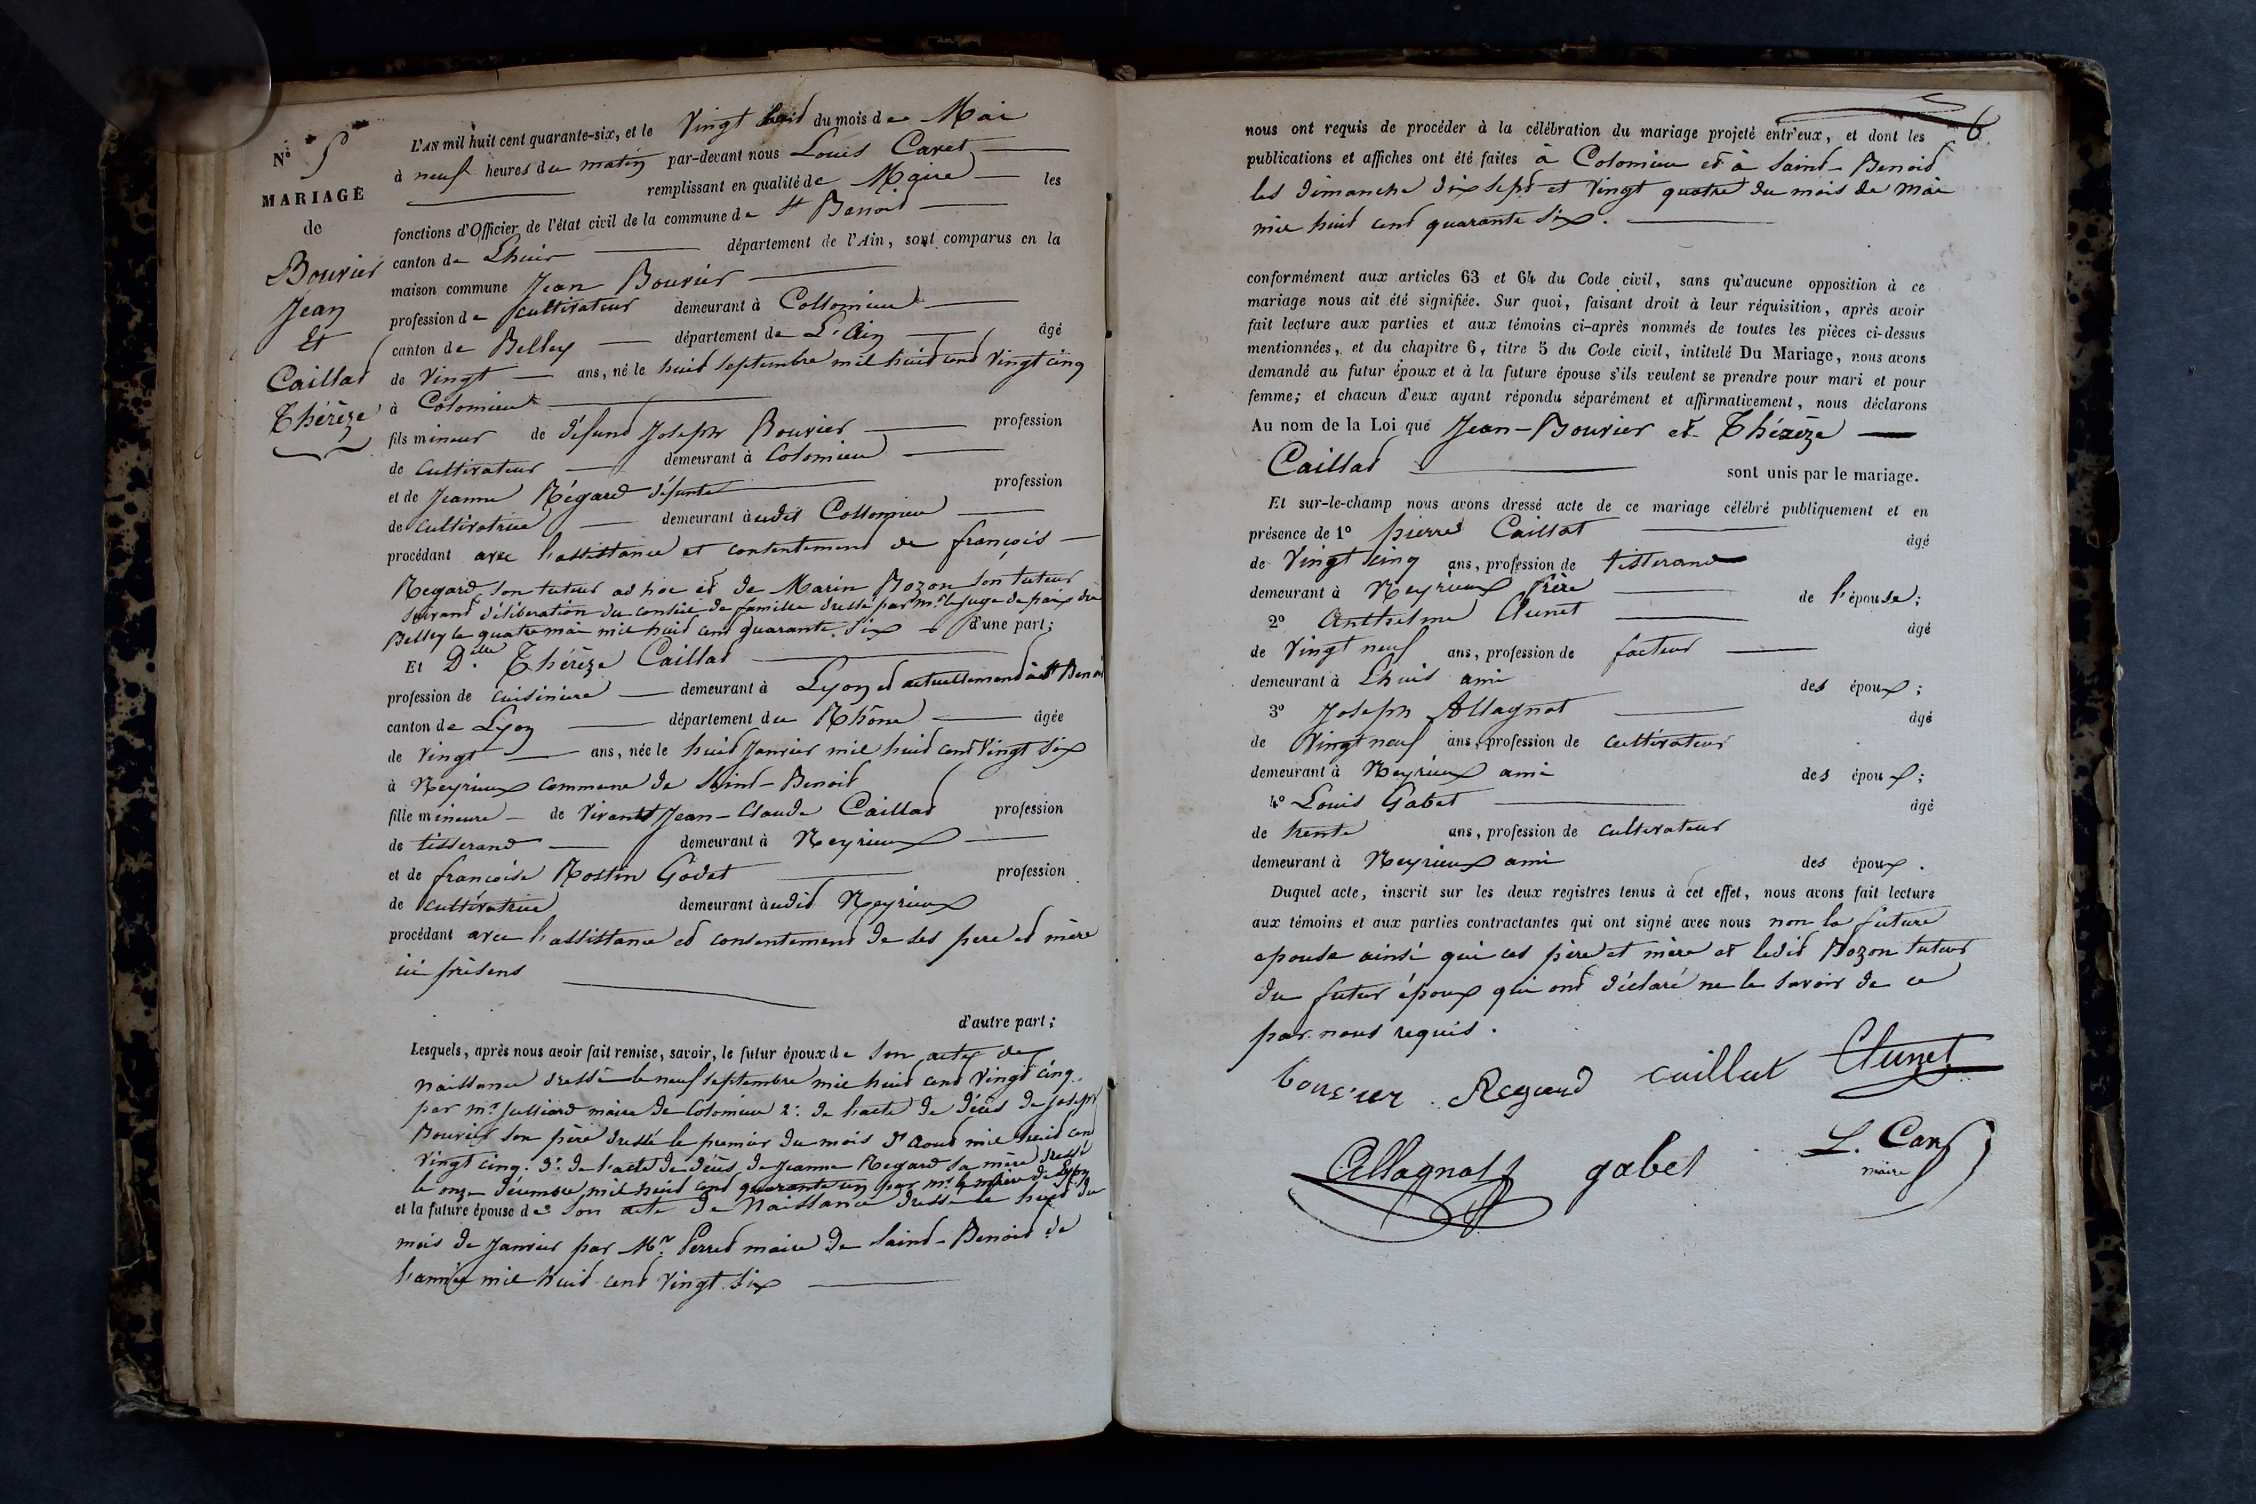 N° 5
MARIAGE
de
Bouvier
Jean
Et
Caillat
Thérèze
L'AN mil huit cent quarante-six, et le Vingt huit du mois de Mai
à neuf heures du matin par-devant nous Louis Caret
remplissant en qualité de Maire les
fonctions d'Officier de l'état civil de la commune de St Benoit
canton de Lhuis département de l'Ain, sont comparus en la
maison commune Jean Bouvier
profession de cultivateur demeurant à Collomieu
canton de Belley département de L'Ain âgé
de Vingt ans, né le huit septembre mil huit cent Vingt cinq
à Colomieu
fils mineur de défunt Joseph Bouvier profession
de cultivateur demeurant à Colomieu
et de Jeanne Régard défunte profession
de cultivatrice demeurant àudit Collomieu
procédant avec l'assistance et contentement de françois
Regard son tuteur ad hoc et de Marin Bozon son tuteur
suivant délibération du conseil de famille dressé par mr le juge de paix de
Belley le quatre mai mil huit cent quarante six d'une part;
Et Dlle Thérèze Caillat
profession de cuisiniere demeurant à Lyon et actuellement à St Benoit
canton de Lyon département du Rhône âgée
de vingt ans, née le huit Janvier mil huit cent Vingt six
à Neyrieux commune de Saint-Benoit
fille mineure de Vivants Jean-Claude Caillat profession
de tisserand demeurant à Neyrieux
et de francoise Rostin Godet profession
de cultivatrice demeurant àudit Neyrieux
procédant avec l'assistance et consentement de ses pere et mère
ici présens
d'autre part;
Lesquels, après nous avoir fait remise, savoir, le futur époux de son acte de
naissance dressé le neuf septembre mil huit cent Vingt cinq
par mr Julliard maire de Colomieu 2° de l'acte de décès de Joseph
Bouvier son père dressé le premier du mois d'Aout mil huit cent
Vingt cinq. 3° de l'acte de décès de Jeanne Regard sa mère dressé
le onze décembre mil huit cent quarante un par mr le maire de Lyon
et la future épouse de son acte de Naissance dressé le huit du
mois de Janvier par Mr Perret maire de Saint-Benoit de
l'année mil huit cent vingt six
6
nous ont requis de procéder à la célébration du mariage projeté entr'eux, et dont les
publications et affiches ont été faites à Colomieu et à Saint-Benoit
les dimanche dix sept et vingt quatre du mois de mai
mil huit cent quarante six.
conformément aux articles 63 et 64 du Code civil, sans qu'aucune opposition à ce
mariage nous ait été signifiée. Sur quoi, faisant droit à leur réquisition, après avoir
fait lecture aux parties et aux témoins ci-après nommés de toutes les pièces ci-dessus
mentionnées, et du chapitre 6, titre 5 du Code civil, intitulé Du Mariage, nous avons
demandé au futur époux et à la future épouse s'ils veulent se prendre pour mari et pour
femme; et chacun d'eux ayant répondu séparément et affirmativement, nous déclarons
Au nom de la Loi que Jean-Bouvier et Thérèze
Caillat sont unis par le mariage.
Et sur-le-champ nous avons dressé acte de ce mariage célébré publiquement et en
présence de 1° pierre Caillat âgé
de Vingt cinq ans, profession de tisserand
demeurant à Neyrieux frère de l'épouse;
2° Anthelme Clunet âgé
de Vingt neuf ans, profession de facteur
demeurant à Lhuis ami des époux;
3° Joseph Allagnat âgé
de Vingt neuf ans, profession de cultivateur
demeurant à Neyrieux ami des époux;
4° Louis Gabet âgé
de trente ans, profession de cultivateur
demeurant à Neyrieux ami des époux.
Duquel acte, inscrit sur les deux registres tenus à cet effet, nous avons fait lecture
aux témoins et aux parties contractantes qui ont signé avec nous non la future
epouse ainsi que ces père et mère et ledit Bozon tuteur
du futur époux qui ont déclaré ne le savoir de ce
par nous requis.
bouvier Regard caillat Clunet
Allagnat gabet L. Caret
maire